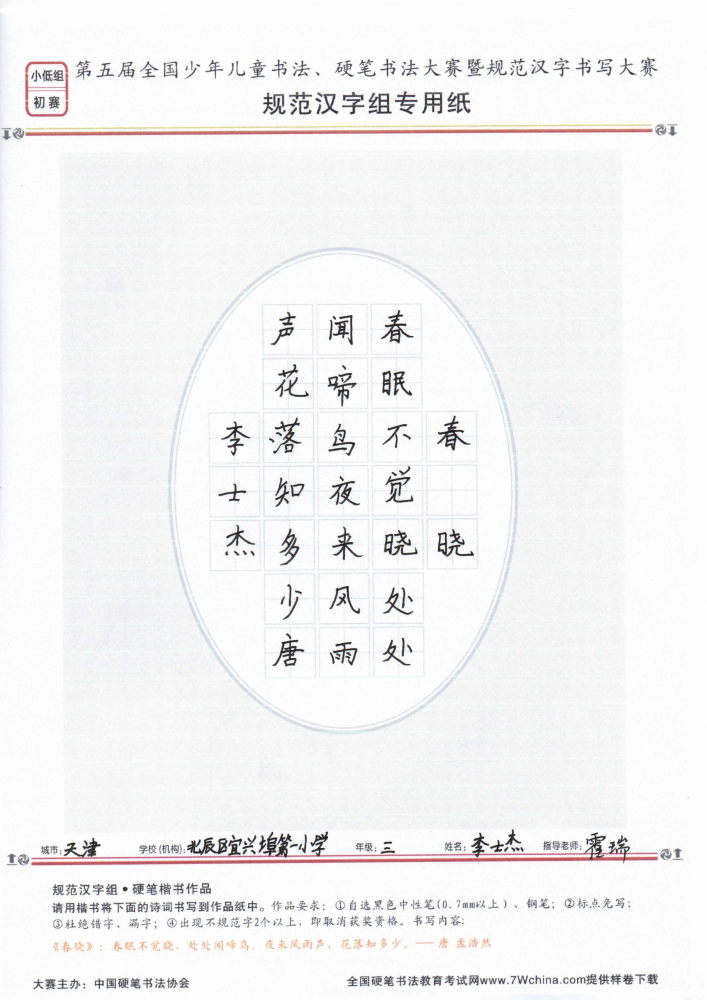 小低组
初赛
第五届全国少年儿童书法、硬笔书法大赛暨规范汉字书写大赛
规范汉字组专用纸
春晓
春眠不觉晓处处
闻啼鸟夜来风雨
声花落知多少唐
李士杰
城市：天津 学校(机构)：北辰区宜兴埠第一小学 年级：三 姓名：李士杰 指导老师：霍瑞
规范汉字组•硬笔楷书作品
请用楷书将下面的诗词书写到作品纸中。作品要求：①自选黑色中性笔(0.7mm以上)、钢笔；②标点免写；
③杜绝错字、漏字；④出现不规范字2个以上，即取消获奖资格。书写内容：
《春晓》：春眠不觉晓，处处闻啼鸟。夜来风雨声，花落知多少。——唐 孟浩然
大赛主办：中国硬笔书法协会
全国硬笔书法教育考试网www.7Wchina.com提供样卷下载